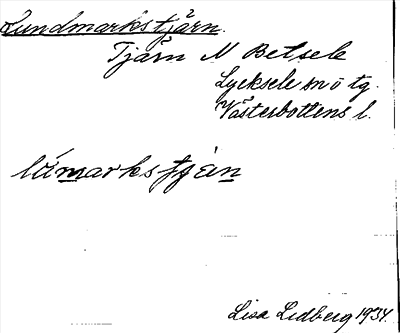 Lundmarkstjärn.
Tjärn N Betsele
Lycksele sn ö tg.
Västerbottens l.
lámarks tján
Lisa Lidberg 1934.